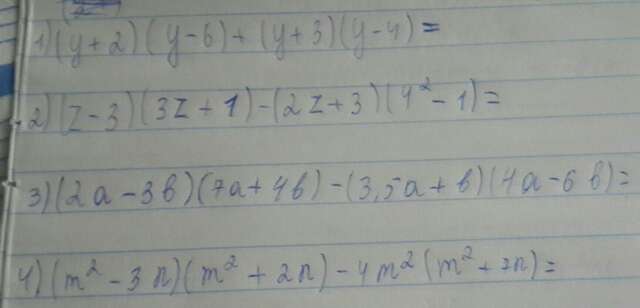 1) (y+2)(y-6)+(y+3)(y-4)=
2) (z-3)(3z+1)-(2z+3)(4²-1)=
3) (2a-3b)(7a+4b)-(3,5a+b)(4a-6b)=
4) (m²-3n)(m²+2n)-4m²(m²+2n)=